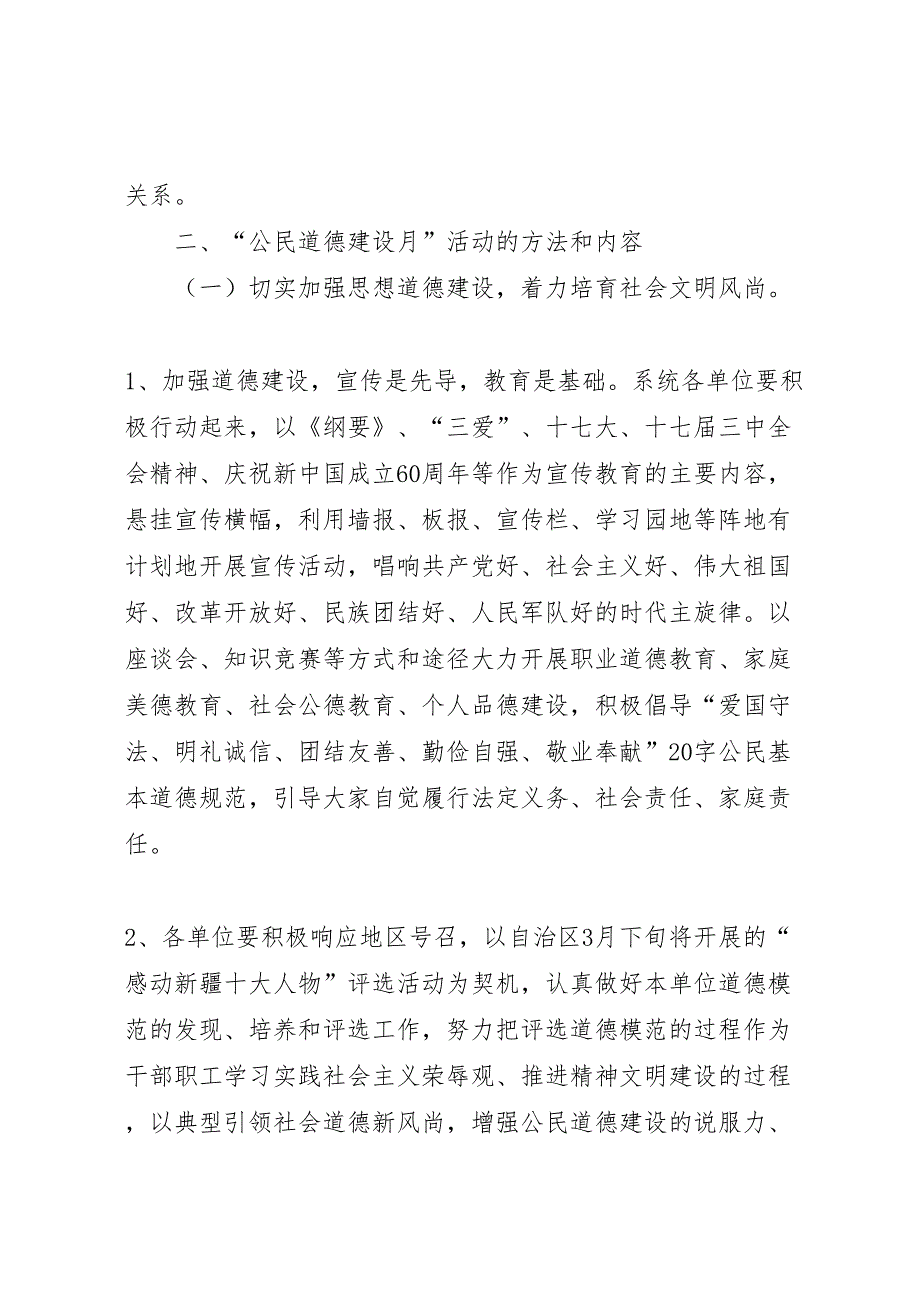 关系。
二、“公民道德建设月”活动的方法和内容
（一）切实加强思想道德建设，着力培育社会文明风尚。
1、加强道德建设，宣传是先导，教育是基础。系统各单位要积
极行动起来，以《纲要》、“三爱”、十七大、十七届三中全
会精神、庆祝新中国成立60周年等作为宣传教育的主要内容，
悬挂宣传横幅，利用墙报、板报、宣传栏、学习园地等阵地有
计划地开展宣传活动，唱响共产党好、社会主义好、伟大祖国
好、改革开放好、民族团结好、人民军队好的时代主旋律。以
座谈会、知识竞赛等方式和途径大力开展职业道德教育、家庭
美德教育、社会公德教育、个人品德建设，积极倡导“爱国守
法、明礼诚信、团结友善、勤俭自强、敬业奉献”20字公民基
本道德规范，引导大家自觉履行法定义务、社会责任、家庭责
任。
2、各单位要积极响应地区号召，以自治区3月下旬将开展的“
感动新疆十大人物”评选活动为契机，认真做好本单位道德模
范的发现、培养和评选工作，努力把评选道德模范的过程作为
干部职工学习实践社会主义荣辱观、推进精神文明建设的过程
，以典型引领社会道德新风尚，增强公民道德建设的说服力、